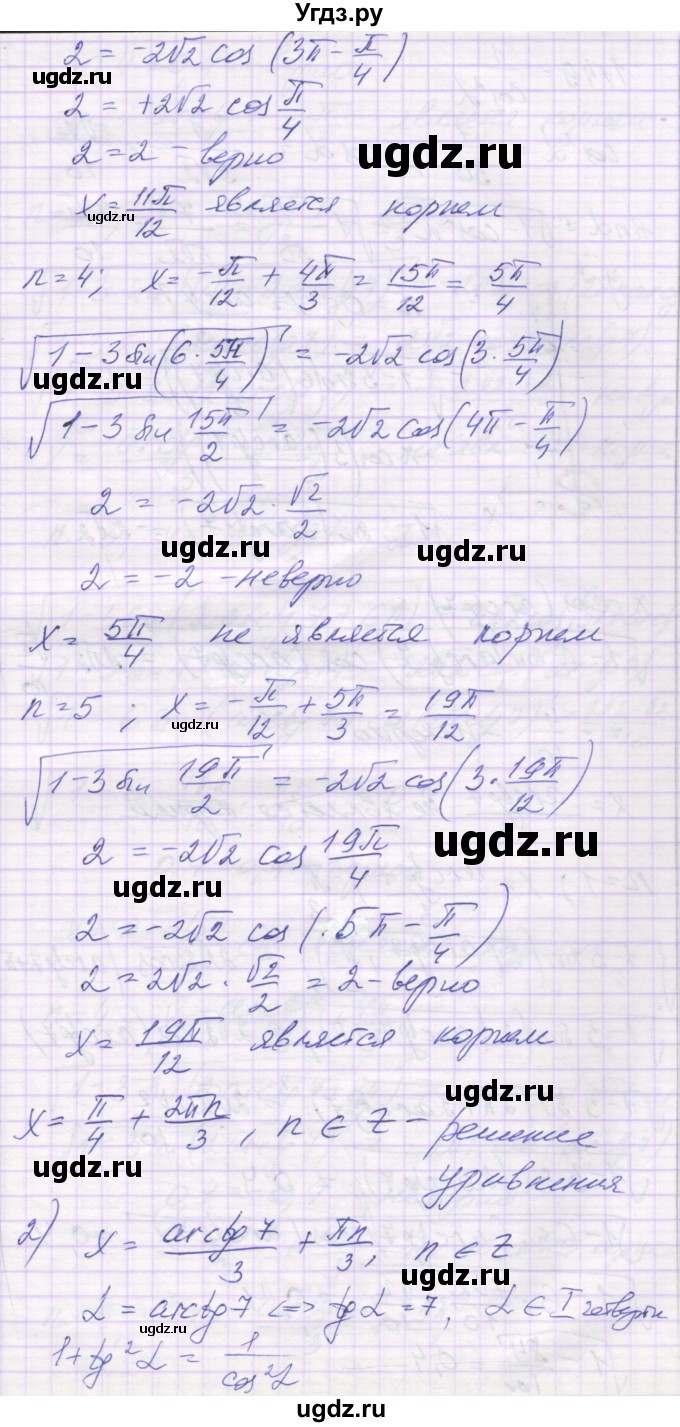 Угдз.ру
2 = -2√2 cos (3π - π/4)
ugdz.ru
2 = +2√2 cos π/4
2 = 2 - верно
ugdz.ru
x = 11π/12 является корнем
ugdz.ru
n = 4; x = -π/12 + 4π/3 = 15π/12 = 5π/4
√(1 - 3 sin(6 · 5π/4)) = -2√2 cos(3 · 5π/4)
ugdz.ru ugdz.ru
√(1 - 3 sin 15π/2) = -2√2 cos(4π - π/4)
2 = -2√2 · √2/2
ugdz.ru ugdz.ru
2 = -2 - неверно
x = 5π/4 не является корнем
n = 5; x = -π/12 + 5π/3 = 19π/12
ugdz.ru
√(1 - 3 sin 19π/2) = -2√2 cos(3 · 19π/12)
ugdz.ru
2 = -2√2 cos 19π/4
ugdz.ru
2 = -2√2 cos(·5π - π/4)
2 = 2√2 · √2/2 = 2 - верно
x = 19π/12 является корнем
ugdz.ru
x = π/4 + 2πn/3, n ∈ Z - решение
ugdz.ru
уравнения
2) x = arctg 7/3 + πn/3, n ∈ Z
ugdz.ru
α = arctg 7 <=> tg α = 7, α ∈ I четверти
ugdz.ru
1 + tg²α = 1/cos²α
ugdz.ru